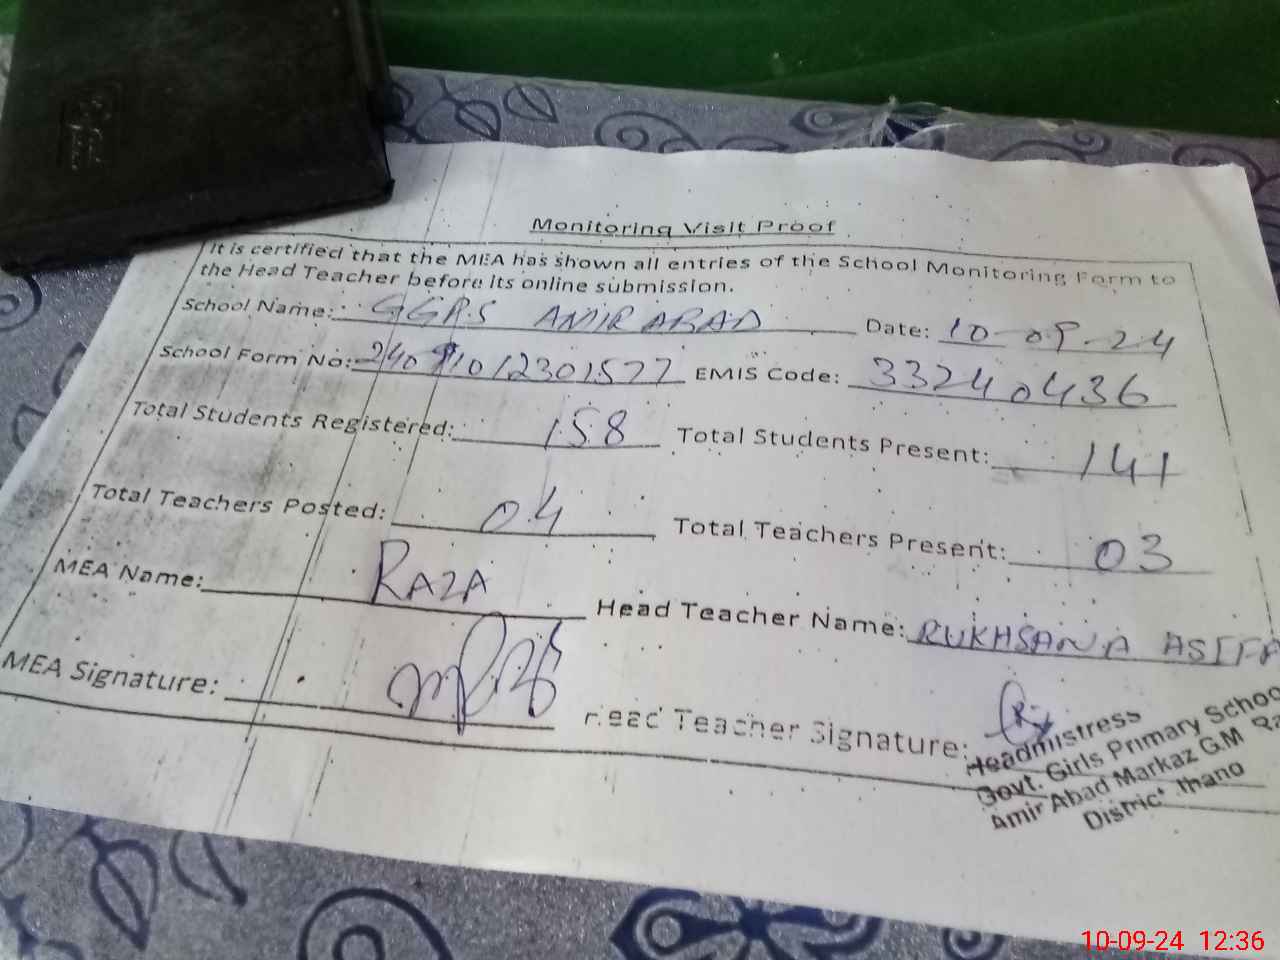 Monitoring Visit Proof
It is certified that the MEA has shown all entries of the School Monitoring Form to
the Head Teacher before its online submission.
School Name: GGPS AMIR ABAD Date: 10-09-24
School Form No: 24091012301577 EMIS Code: 33240436
Total Students Registered: 158 Total Students Present: 141
Total Teachers Posted: 04 Total Teachers Present: 03
MEA Name: RAZA Head Teacher Name: RUKHSANA
MEA Signature: Head Teacher Signature:
Headmistress
Govt. Girls Primary School
Amir Abad Markaz G.M
District
10-09-24 12:36